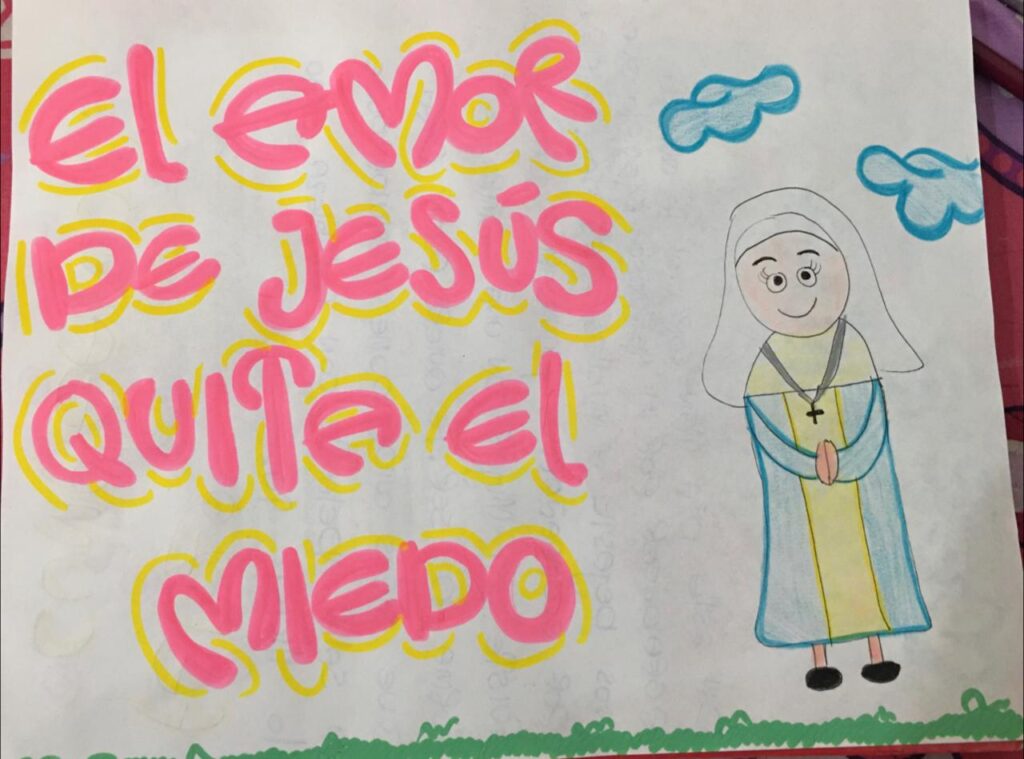 El amor
de Jesús
quita el
miedo